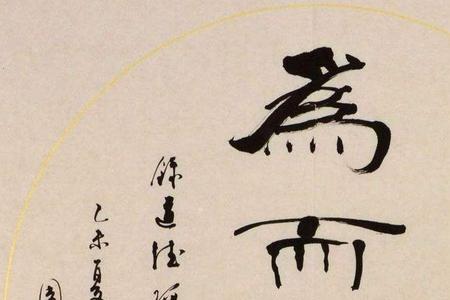 為而
錄道德經
乙未夏